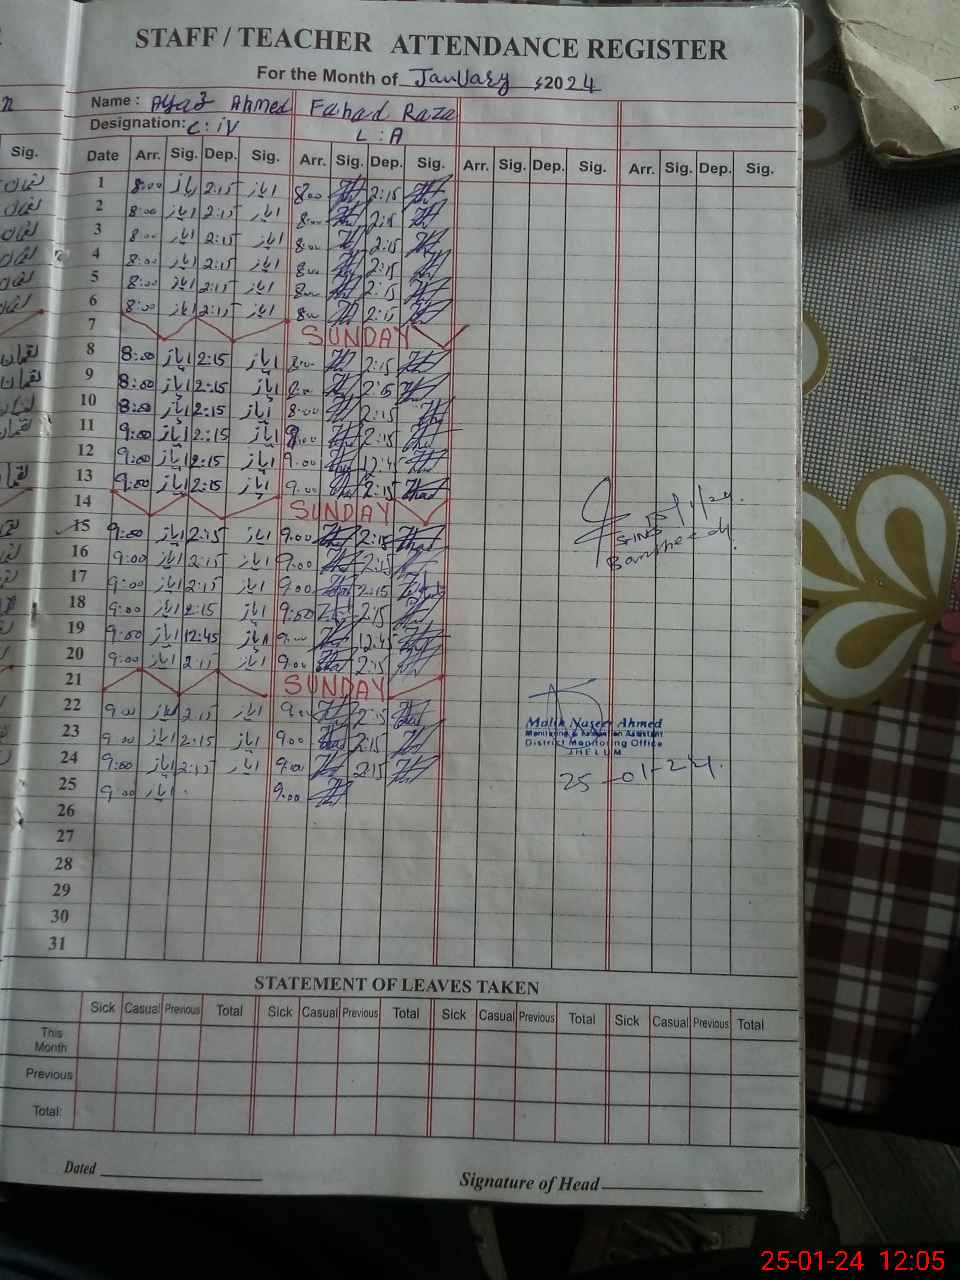 STAFF / TEACHER ATTENDANCE REGISTER
For the Month of January 2024
Name: Ayaz Ahmed Fahad Raza
Designation: C:iV L:A
Sig. Date Arr. Sig. Dep. Sig. Arr. Sig. Dep. Sig. Arr. Sig. Dep. Sig. Arr. Sig. Dep. Sig.
1 8:00 ایاز 2:15 ایاز 8:00 2:15
2 8:00 ایاز 2:15 ایاز 8:00 2:15
3 8:00 ایاز 2:15 ایاز 8:00 2:15
4 8:00 ایاز 2:15 ایاز 8:00 2:15
5 8:00 ایاز 2:15 ایاز 8:00 2:15
6 8:00 ایاز 2:15 ایاز 8:00 2:15
7 SUNDAY
8 8:00 ایاز 2:15 ایاز 8:00 2:15
9 8:00 ایاز 2:15 ایاز 8:00 2:15
10 8:00 ایاز 2:15 ایاز 8:00 2:15
11 9:00 ایاز 2:15 ایاز 9:00 2:15
12 9:00 ایاز 2:15 ایاز 9:00 12:45
13 9:00 ایاز 2:15 ایاز 9:00 2:15
14 SUNDAY
15 9:00 ایاز 2:15 ایاز 9:00 2:15
16 9:00 ایاز 2:15 ایاز 9:00 2:15
17 9:00 ایاز 2:15 ایاز 9:00 2:15
18 9:00 ایاز 2:15 ایاز 9:00 2:15
19 9:00 ایاز 12:45 ایاز 9:00 12:45
20 9:00 ایاز 2:15 ایاز 9:00 2:15
21 SUNDAY
22 9:00 ایاز 2:15 ایاز 9:00 2:15
23 9:00 ایاز 2:15 ایاز 9:00 2:15
24 9:00 ایاز 2:15 ایاز 9:00 2:15
25 9:00 ایاز 9:00
26
27
28
29
30
31
Malik Naseer Ahmed
Monitoring & Evaluation Assistant
District Monitoring Office
JHELUM
25-01-24.
STATEMENT OF LEAVES TAKEN
Sick Casual Previous Total Sick Casual Previous Total Sick Casual Previous Total Sick Casual Previous Total
This Month
Previous
Total:
Dated
Signature of Head
25-01-24 12:05